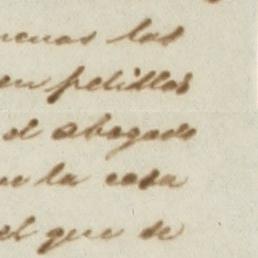 menos las
en pelillos
el abogado
la cosa
el que se